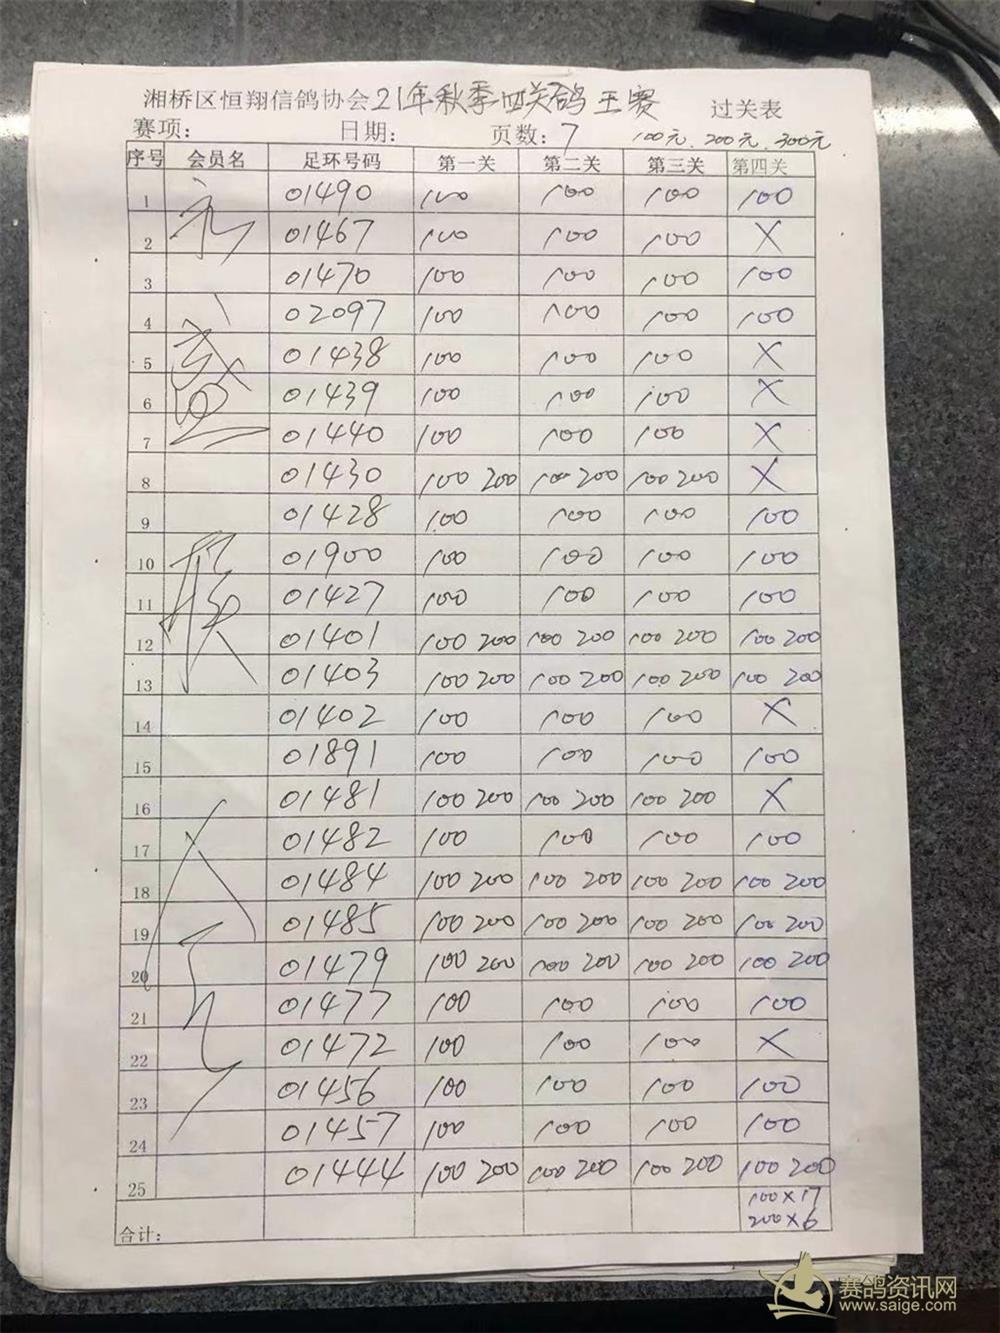 湘桥区恒翔信鸽协会21年秋季四关鸽王赛 过关表
赛项: 日期: 页数:7 100元.200元.300元
序号 会员名 足环号码 第一关 第二关 第三关 第四关
1 01490 100 100 100 100
2 01467 100 100 100 X
3 01470 100 100 100 100
4 02097 100 100 100 100
5 01438 100 100 100 X
6 01439 100 100 100 X
7 01440 100 100 100 X
8 01430 100 200 100 200 100 200 X
9 01428 100 100 100 100
10 01900 100 100 100 100
11 01427 100 100 100 100
12 01401 100 200 100 200 100 200 100 200
13 01403 100 200 100 200 100 200 100 200
14 01402 100 100 100 X
15 01891 100 100 100 100
16 01481 100 200 100 200 100 200 X
17 01482 100 100 100 100
18 01484 100 200 100 200 100 200 100 200
19 01485 100 200 100 200 100 200 100 200
20 01479 100 200 100 200 100 200 100 200
21 01477 100 100 100 100
22 01472 100 100 100 X
23 01456 100 100 100 100
24 01457 100 100 100 100
25 01444 100 200 100 200 100 200 100 200
100X17
合计: 200X6
赛鸽资讯网
www.saige.com